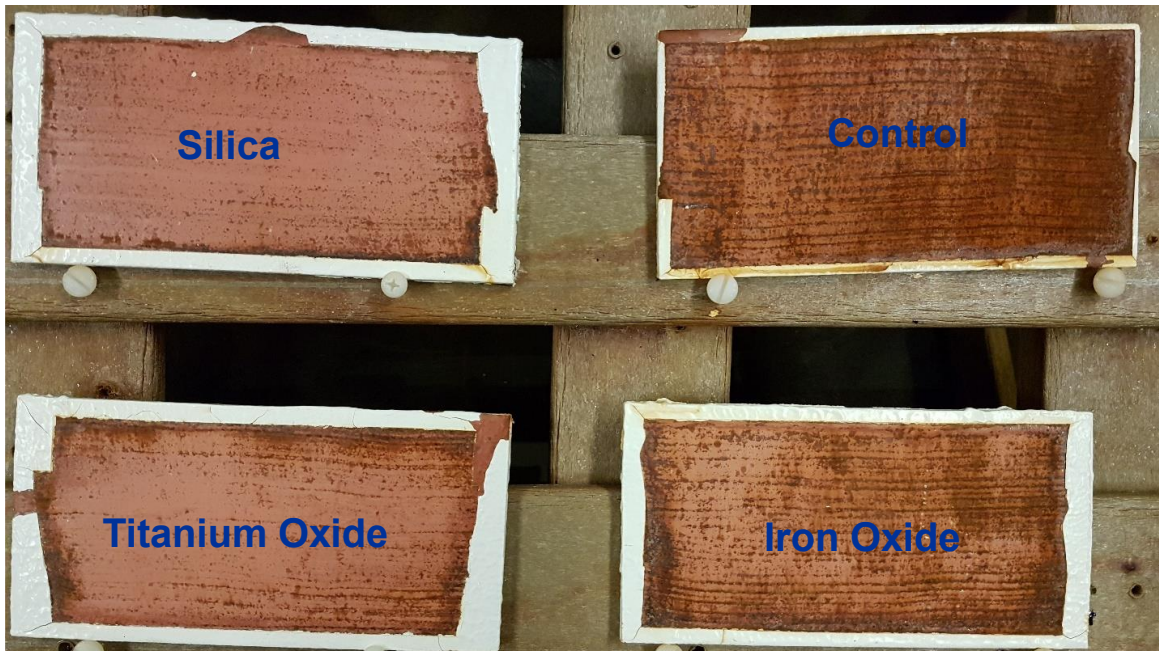 Silica
Control
Titanium Oxide
Iron Oxide